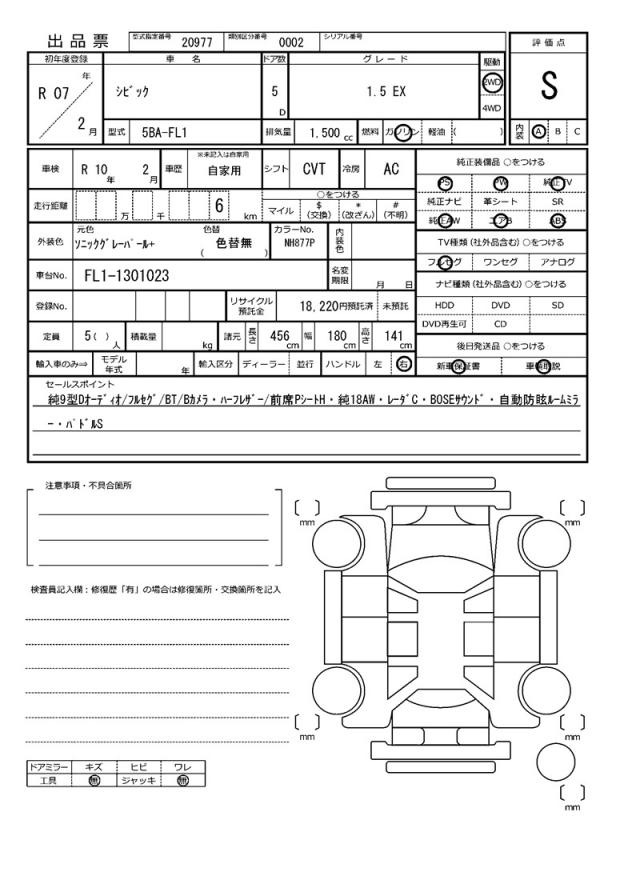 出品票 型式指定番号 20977 類別区分番号 0002 シリアル番号
評価点
初年度登録 車名 ドア数 グレード 駆動
R 07 年 2 月 シビック 5 D 1.5 EX 2WD 4WD
S
型式 5BA-FL1 排気量 1.500 cc 燃料 ガソリン 軽油 ( )
内装 A B C
車検 R 10 年 2 月 車歴 ※未記入は自家用 自家用 シフト CVT 冷房 AC
走行距離 万 千 6 km
○をつける
マイル $ (交換) * (改ざん) # (不明)
外装色 元色 ソニックグレーパール+ 色替 ( 色替無 ) カラーNo. NH877P 内装色
車台No. FL1-1301023 名変期限 月 日
登録No. リサイクル預託金 18,220円預託済 未預託
定員 5( ) 人 積載量 kg 諸元 長さ 456 cm 幅 180 cm 高さ 141 cm
輸入車のみ⇒ モデル年式 年 輸入区分 ディーラー 並行 ハンドル 左 右
純正装備品 ○をつける
PS PW 純正TV
純正ナビ 革シート SR
純正AW エアB ABS
TV種類 (社外品含む) ○をつける
フルセグ ワンセグ アナログ
ナビ種類 (社外品含む) ○をつける
HDD DVD SD
DVD再生可 CD
後日発送品 ○をつける
新車保証書 車輌取説
セールスポイント
純9型Dオーディオ/フルセグ/BT/Bカメラ・ハーフレザー/前席PシートH・純18AW・レーダC・BOSEサウンド・自動防眩ルームミラ
ー・パドルS
注意事項・不具合箇所
検査員記入欄：修復歴「有」の場合は修復箇所・交換箇所を記入
mm mm
mm mm
mm
ドアミラー キズ ヒビ ワレ
工具 無 ジャッキ 無